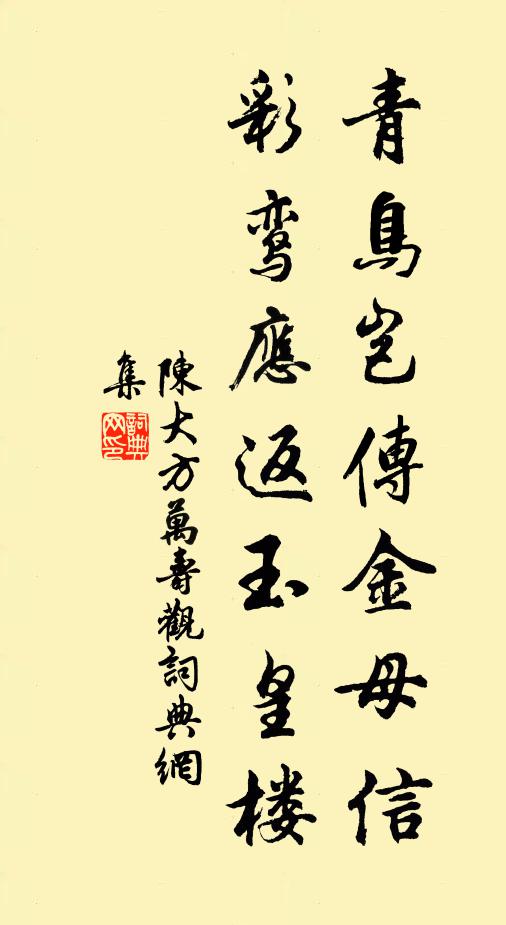 青鳥岂傳金母信
彩鸾應返玉皇楼
陳大方萬壽觀詞典網
集
詞典
网印